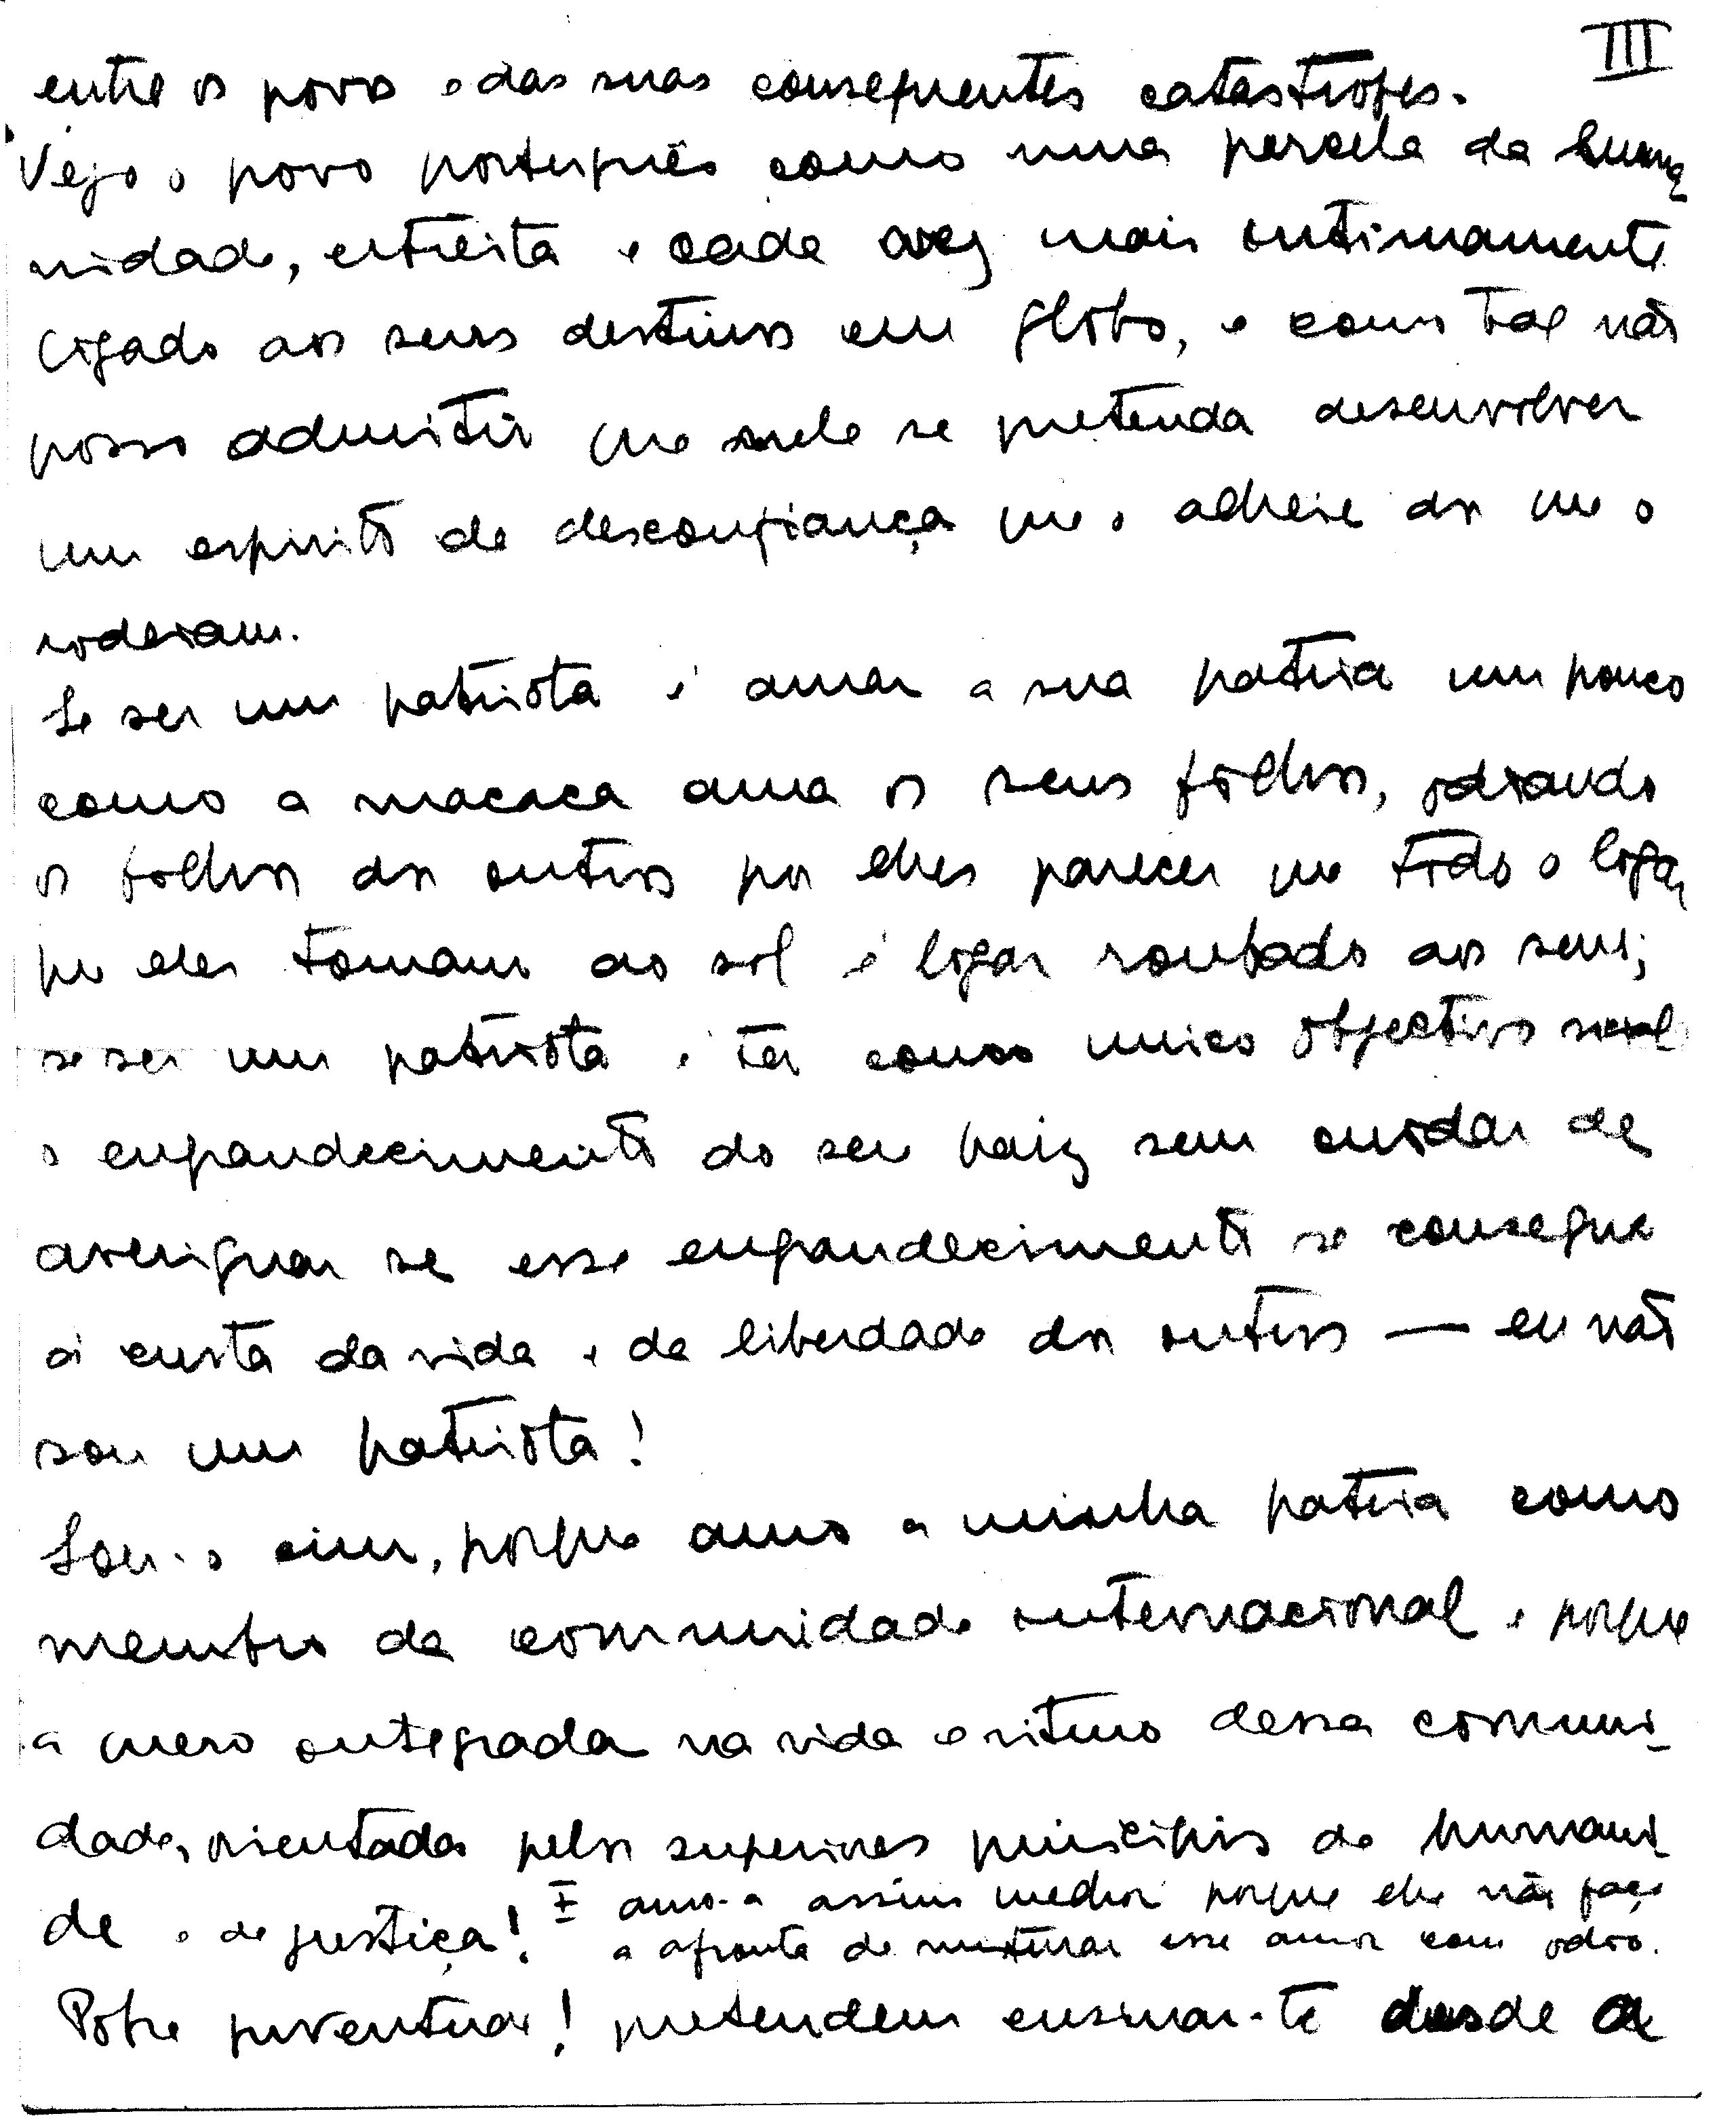 III
entre os povos e das suas consequentes catastrofes.
Vejo o povo português como uma parcela da huma
nidade, estreita e cada vez mais intimamente
ligado aos seus destinos em globo, e como tal não
posso admitir que nele se pretenda desenvolver
um espirito de desconfiança que o alheie dos que o
rodeiam.
Se ser um patriota é amar a sua patria um pouco
como a macaca ama os seus filhos, odiando
os filhos dos outros por lhes parecer que todo o logar
que eles tomam ao sol é logar roubado aos seus;
se ser um patriota é ter como unico objectivo social
o engrandecimento do seu paiz sem cuidar de
averiguar se esse engrandecimento se consegue
á custa da vida e da liberdade dos outros — eu não
sou um patriota!
Sou-o sim, porque amo a minha patria como
membro da comunidade internacional e porque
a quero integrada na vida e ritmo dessa comuni-
dade, orientada pelos superiores principios de humani
de e de justiça! E amo-a assim melhor porque lhe não faço
a afronta de misturar esse amor com odio.
Pobre juventude! pretendem ensinar-te desde a